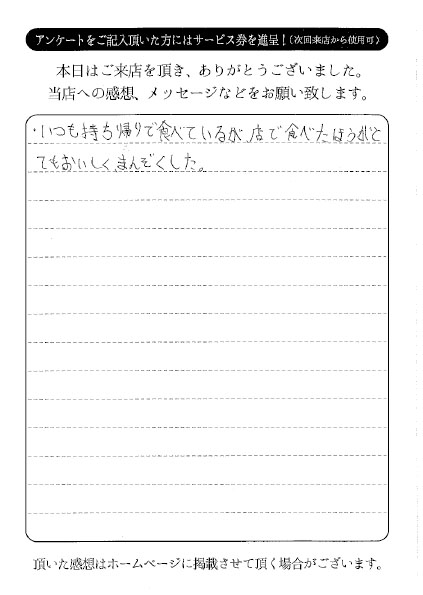 アンケートをご記入頂いた方にはサービス券を進呈!(次回来店から使用可)
本日はご来店を頂き、ありがとうございました。
当店への感想、メッセージなどをお願い致します。
・いつも持ち帰りで食べているが、店で食べたほうがと
てもおいしく、まんぞくした。
頂いた感想はホームページに掲載させて頂く場合がございます。